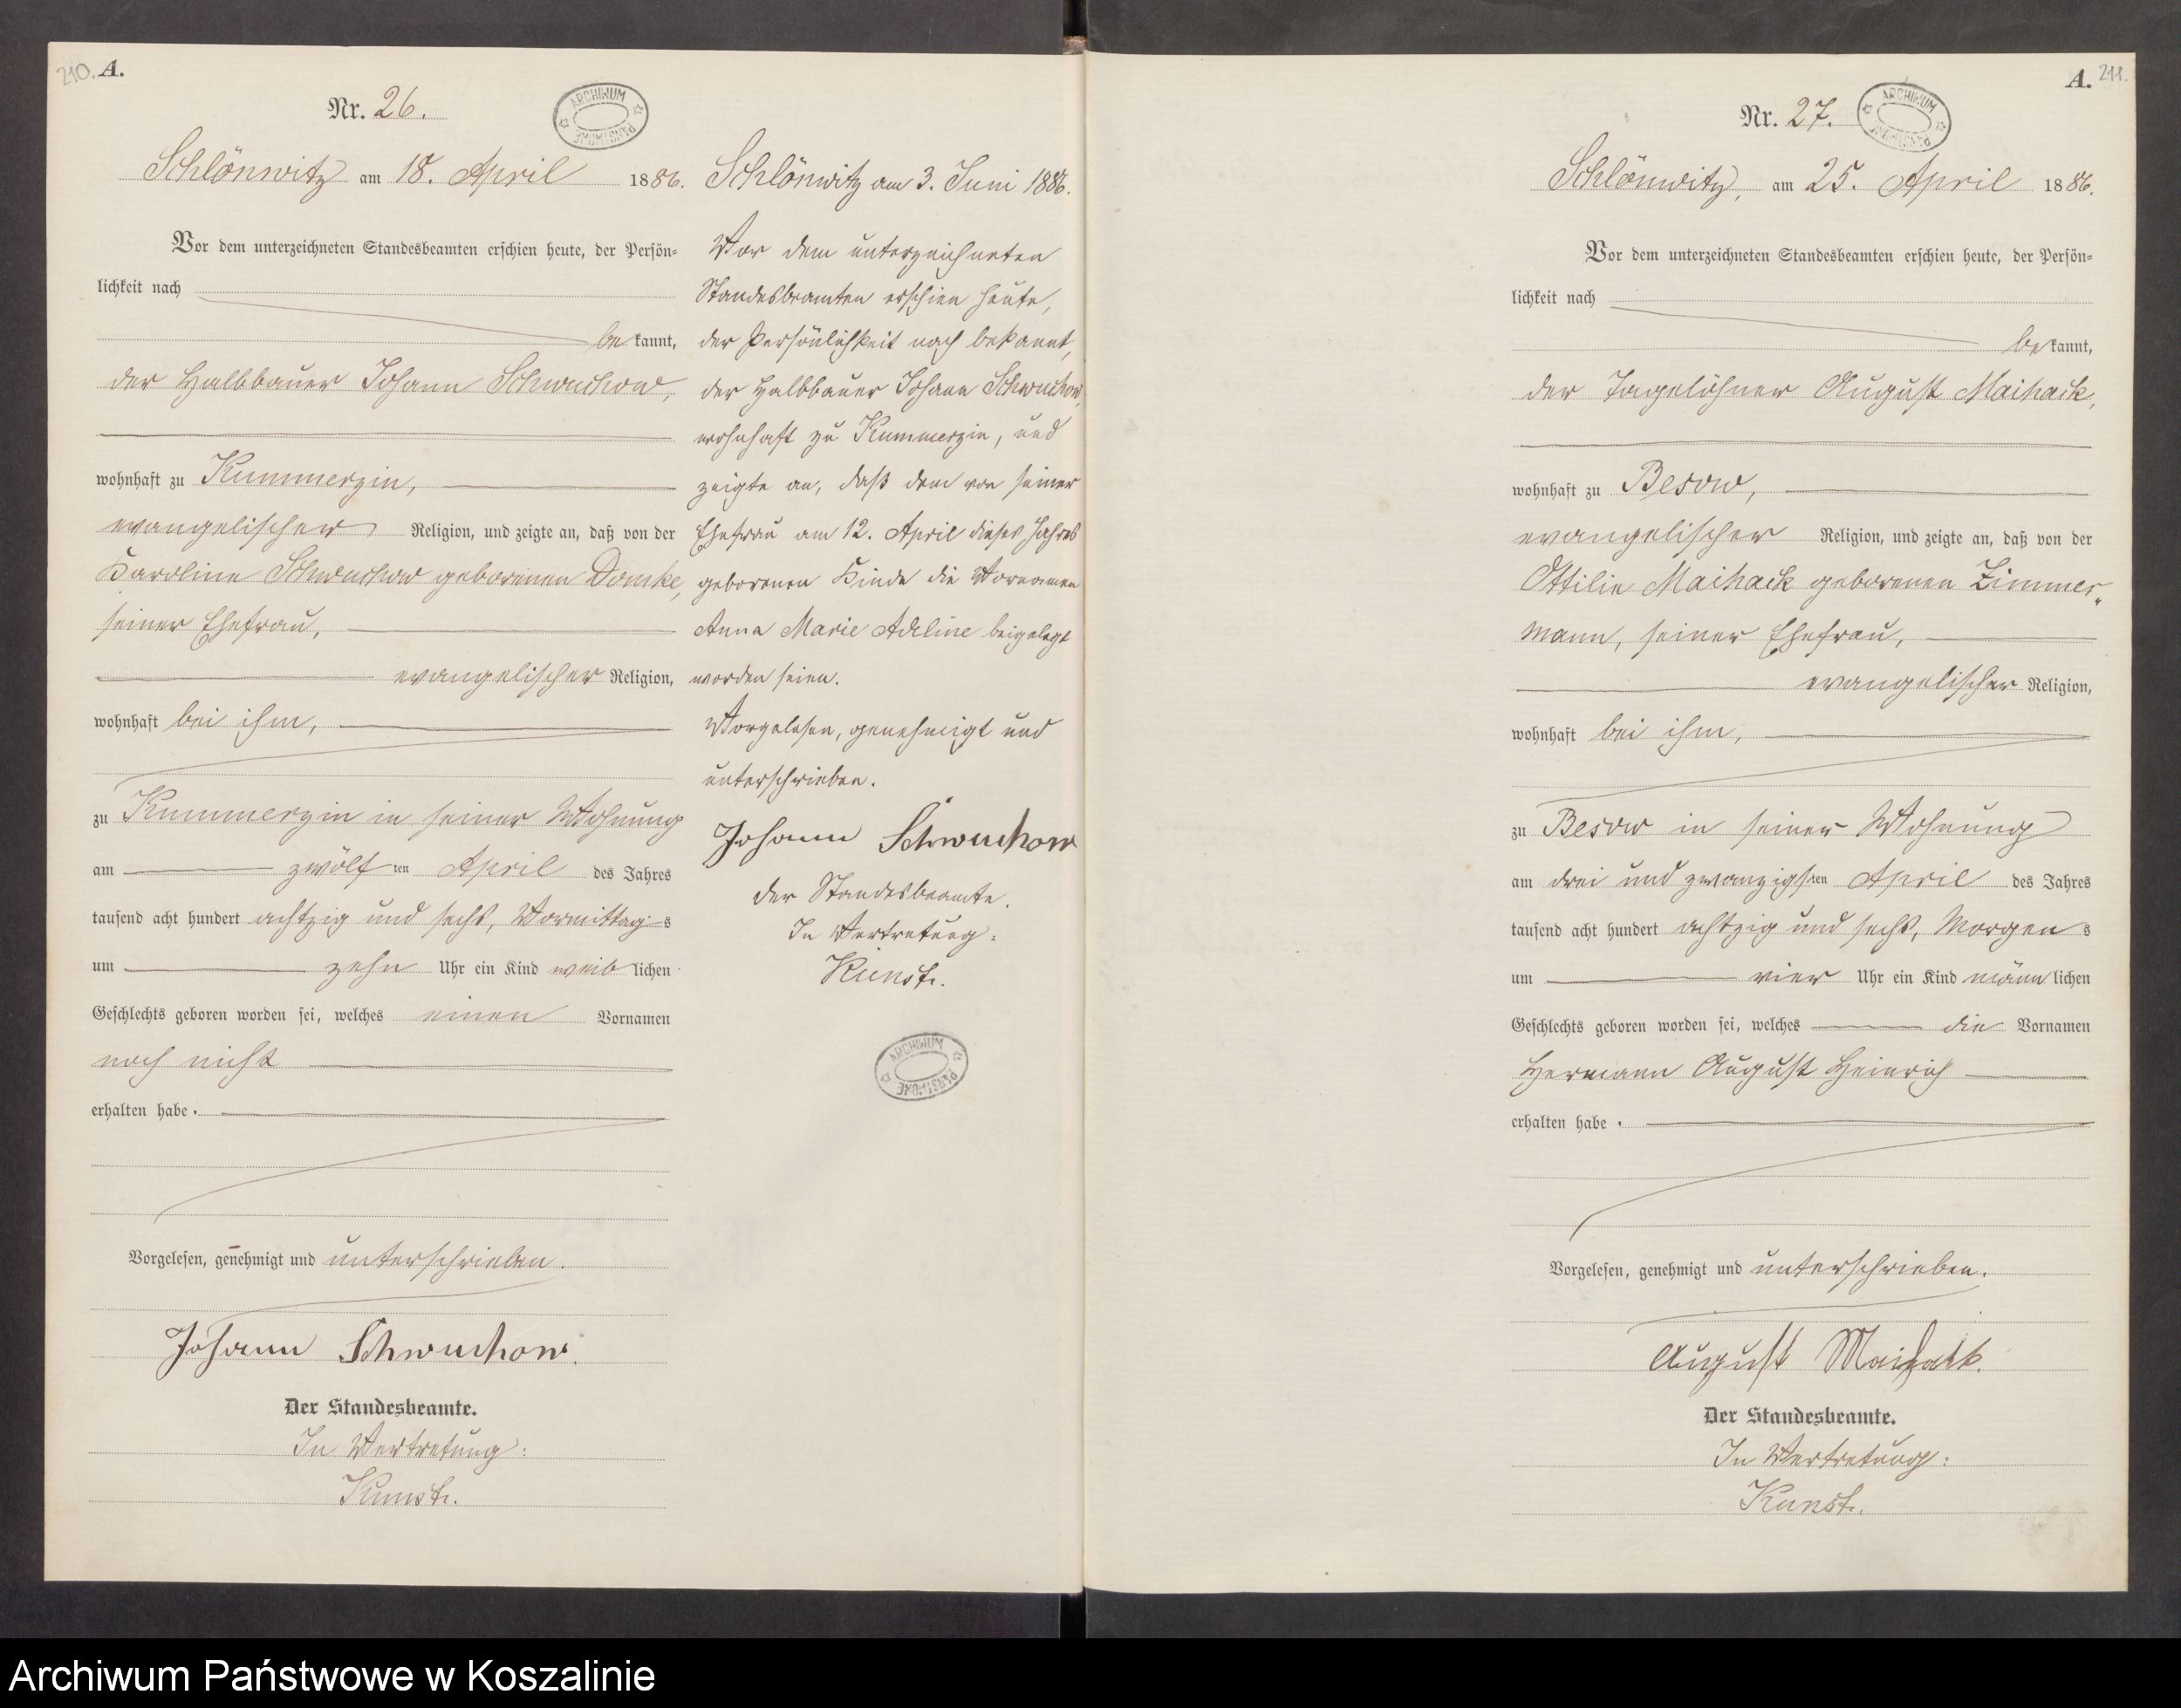 210. A.
Nr. 26.
ARCHIWUM PAŃSTWOWE
Schlönwitz am 18. April 1886.
Vor dem unterzeichneten Standesbeamten erschien heute, der Persön-
lichkeit nach
bekannt,
der Halbbauer Johann Schwuchow,
wohnhaft zu Kummerzin,
evangelischer Religion, und zeigte an, daß von der
Karoline Schwuchow geborenen Domke,
seiner Ehefrau,
evangelischer Religion,
wohnhaft bei ihm,
zu Kummerzin in seiner Wohnung
am zwölften April des Jahres
tausend acht hundert achtzig und sechs, Vormittags
um zehn Uhr ein Kind weiblichen
Geschlechts geboren worden sei, welches einen Vornamen
noch nicht
erhalten habe.
Vorgelesen, genehmigt und unterschrieben.
Johann Schwuchow.
Der Standesbeamte.
In Vertretung:
Kunst.
Schlönwitz am 3. Juni 1886.
Vor dem unterzeichneten
Standesbeamten erschien heute,
der Persönlichkeit nach bekannt,
der Halbbauer Johann Schwuchow,
wohnhaft zu Kummerzin, und
zeigte an, daß dem von seiner
Ehefrau am 12. April dieses Jahres
geborenen Kinde die Vornamen
Anna Marie Adeline beigelegt
worden seien.
Vorgelesen, genehmigt und
unterschrieben.
Johann Schwuchow
Der Standesbeamte.
In Vertretung:
Kunst.
ARCHIWUM PAŃSTWOWE
A. 211.
Nr. 27.
ARCHIWUM PAŃSTWOWE
Schlönwitz, am 25. April 1886.
Vor dem unterzeichneten Standesbeamten erschien heute, der Persön-
lichkeit nach
bekannt,
der Tagelöhner August Maihack,
wohnhaft zu Besow,
evangelischer Religion, und zeigte an, daß von der
Ottilie Maihack geborenen Zimmer„
mann, seiner Ehefrau,
evangelischer Religion,
wohnhaft bei ihm,
zu Besow in seiner Wohnung
am drei und zwanzigsten April des Jahres
tausend acht hundert achtzig und sechs, Morgens
um vier Uhr ein Kind männlichen
Geschlechts geboren worden sei, welches die Vornamen
Hermann August Heinrich
erhalten habe.
Vorgelesen, genehmigt und unterschrieben.
August Maihack.
Der Standesbeamte.
In Vertretung:
Kunst.
Archiwum Państwowe w Koszalinie